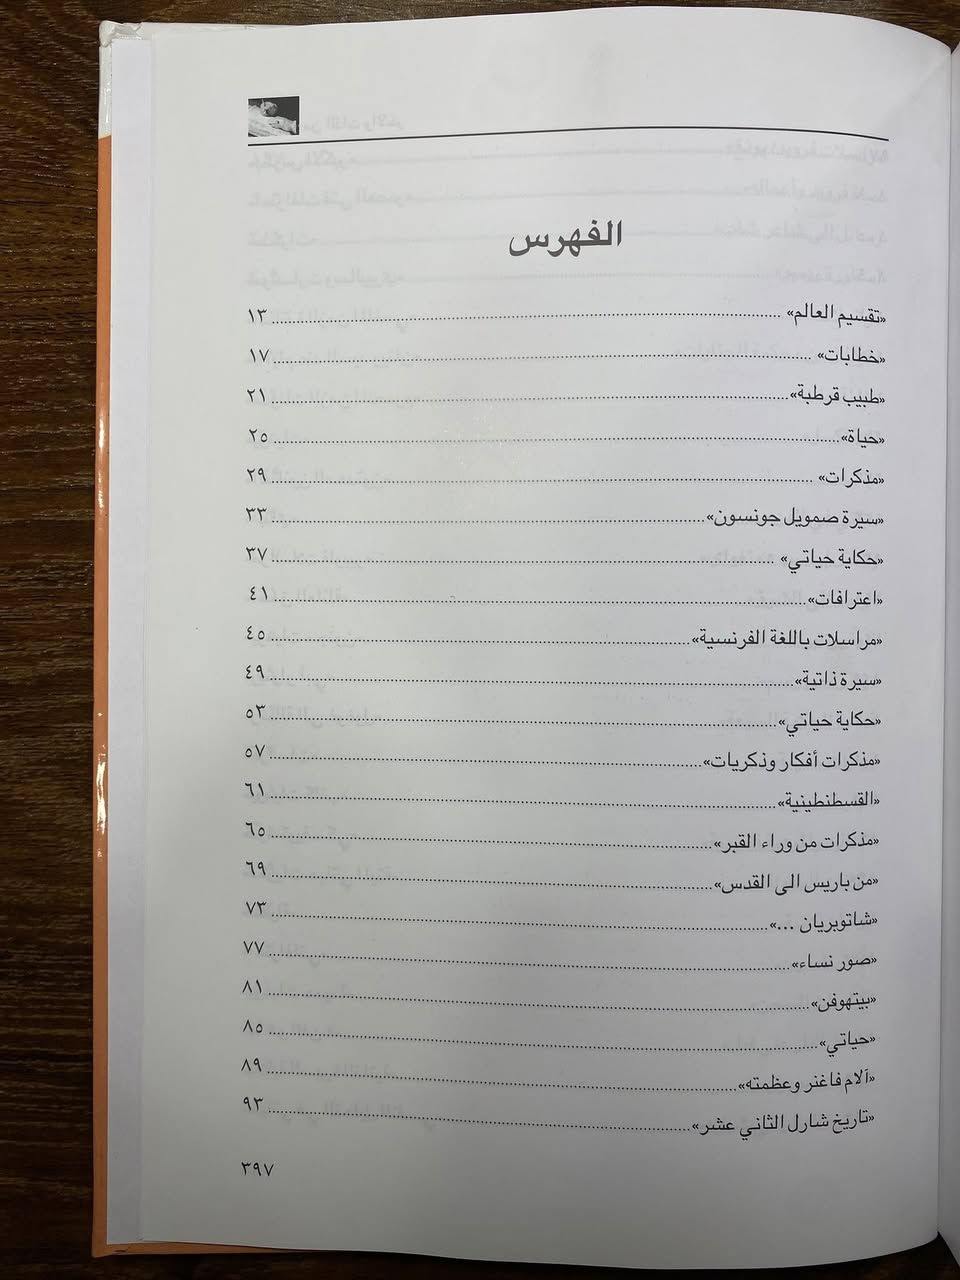 الفهرس
«تقسيم العالم» ........ ١٣
«خطابات» ........ ١٧
«طبيب قرطبة» ........ ٢١
«حياة» ........ ٢٥
«مذكرات» ........ ٢٩
«سيرة صمويل جونسون» ........ ٣٣
«حكاية حياتي» ........ ٣٧
«اعترافات» ........ ٤١
«مراسلات باللغة الفرنسية» ........ ٤٥
«سيرة ذاتية» ........ ٤٩
«حكاية حياتي» ........ ٥٣
«مذكرات أفكار وذكريات» ........ ٥٧
«القسطنطينية» ........ ٦١
«مذكرات من وراء القبر» ........ ٦٥
«من باريس الى القدس» ........ ٦٩
«شاتوبريان ...» ........ ٧٣
«صور نساء» ........ ٧٧
«بيتهوفن» ........ ٨١
«حياتي» ........ ٨٥
«آلام فاغنر وعظمته» ........ ٨٩
«تاريخ شارل الثاني عشر» ........ ٩٣
٣٩٧